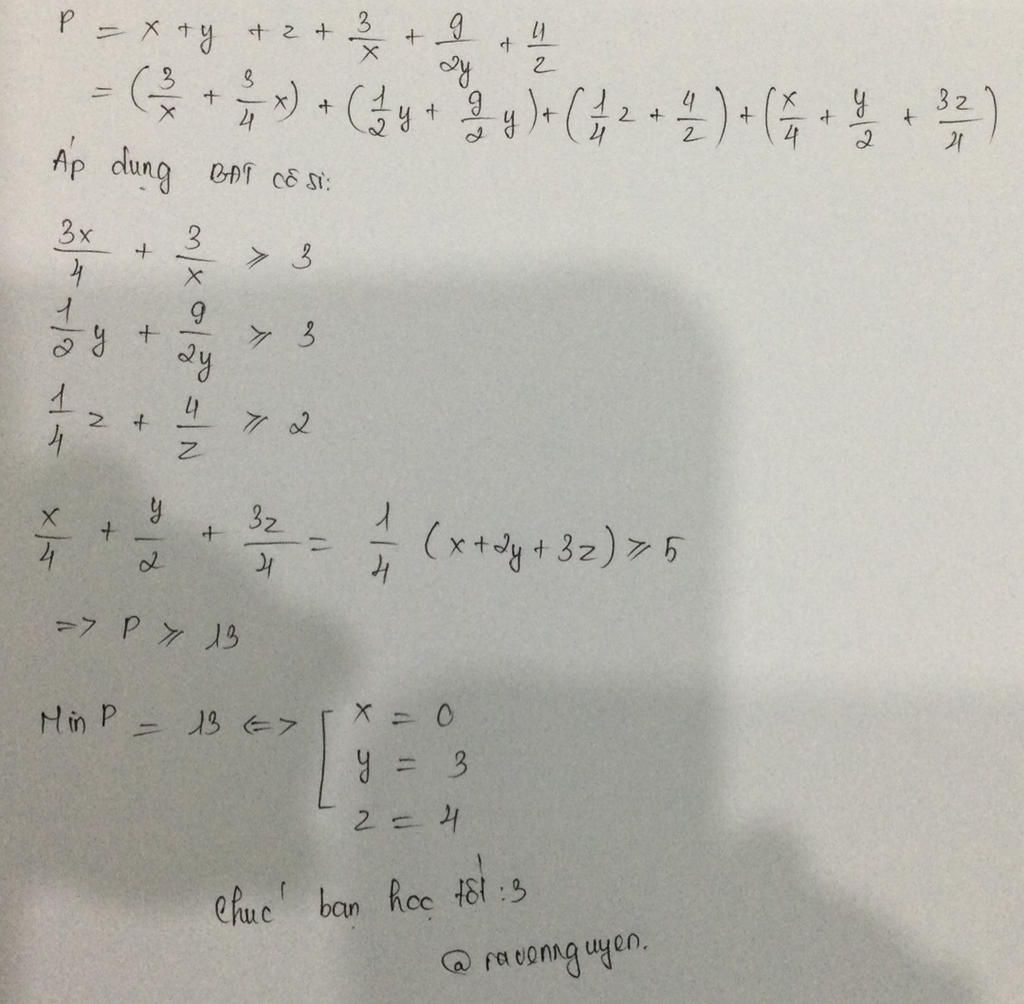 P = x + y + z + 3/x + 9/2y + 4/z
= (3/x + 3/4 x) + (1/2 y + 9/2 y) + (1/4 z + 4/z) + (x/4 + y/2 + 3z/4)
Áp dụng BĐT cô si:
3x/4 + 3/x ≥ 3
1/2 y + 9/2y ≥ 3
1/4 z + 4/z ≥ 2
x/4 + y/2 + 3z/4 = 1/4 (x + 2y + 3z) ≥ 5
=> P ≥ 13
Min P = 13 <=> [ x = 0
y = 3
z = 4
Chúc bạn học tốt :3
@ravennguyen.